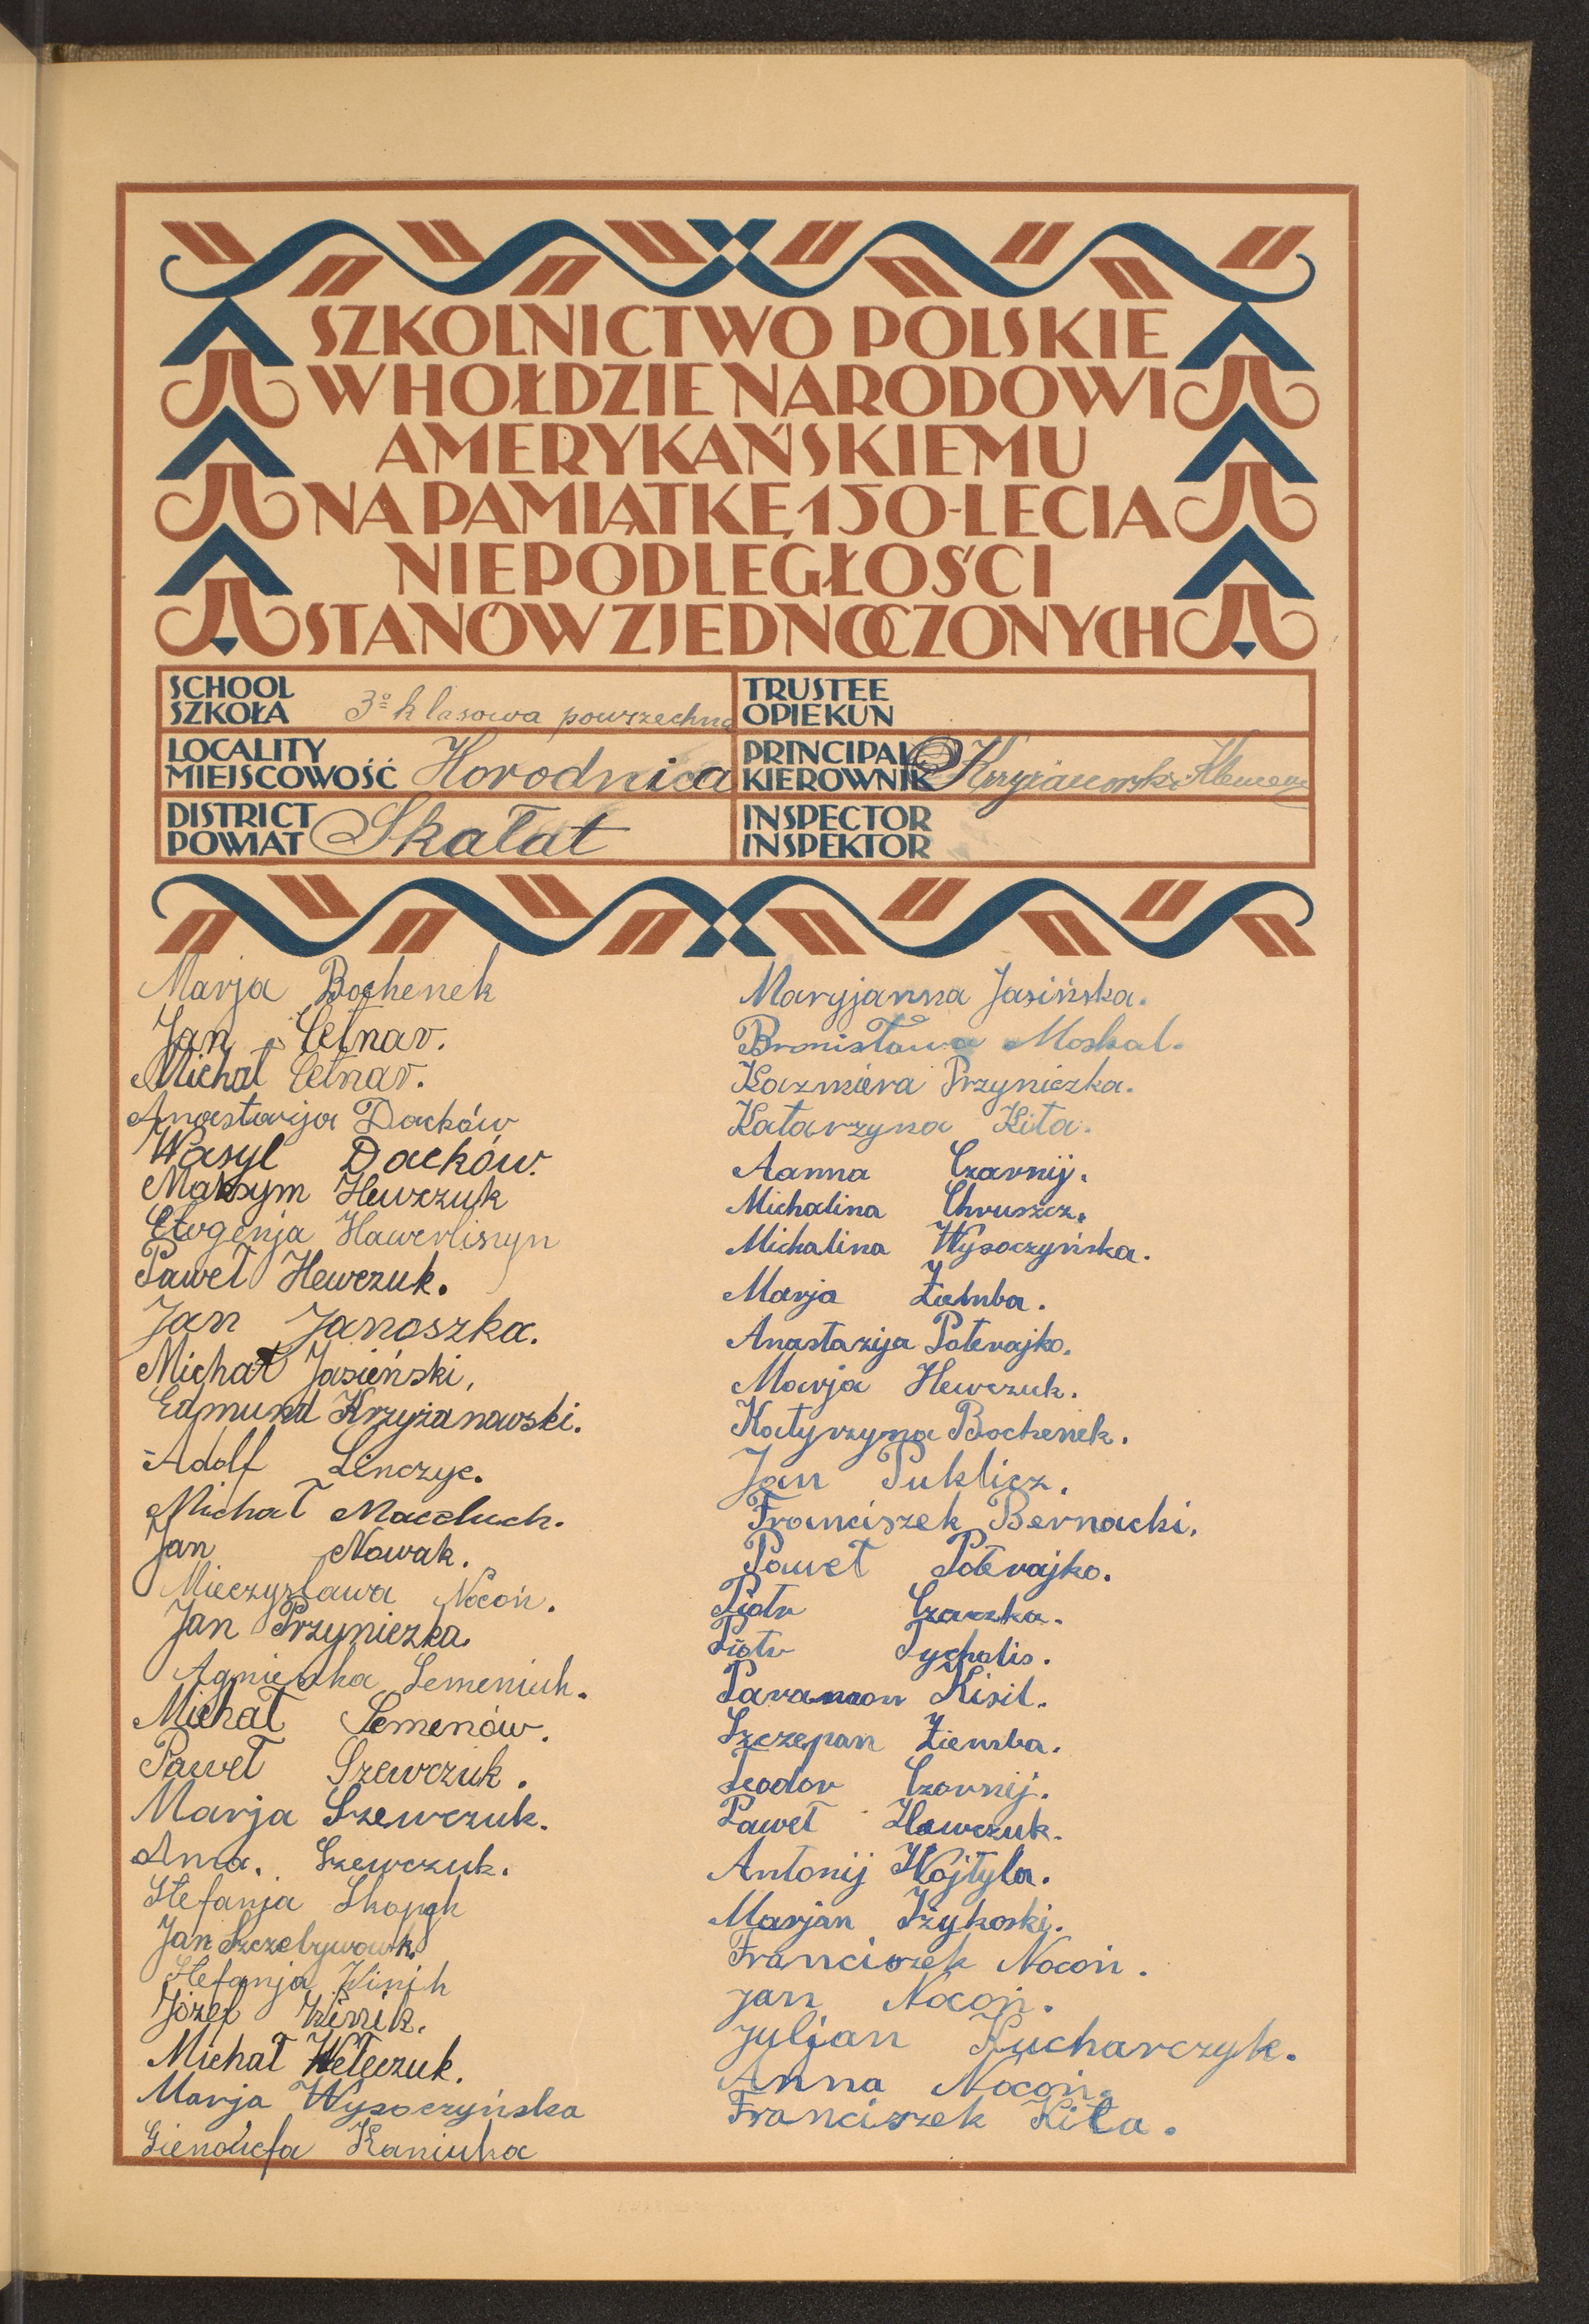 SZKOLNICTWO POLSKIE
W HOŁDZIE NARODOWI
AMERYKAŃSKIEMU
NA PAMIĄTKĘ 150-LECIA
NIEPODLEGŁOŚCI
STANÓW ZJEDNOCZONYCH
SCHOOL
SZKOŁA 3º klasowa powszechna
TRUSTEE
OPIEKUN
LOCALITY
MIEJSCOWOŚĆ Horodnica
PRINCIPAL
KIEROWNIK Krzyżanowski Klemens
DISTRICT
POWIAT Skałat
INSPECTOR
INSPEKTOR
Marja Bochenek
Jan Cetnar.
Michał Cetnar.
Anastazija Daćków
Wasyl Daćków.
Maksym Hewczuk
Ewgenja Hawerliszyn
Paweł Hewczuk.
Jan Janoszka.
Michał Jasieński,
Edmund Krzyżanowski.
Adolf Lenczyc.
Michał Macełuch.
Jan Nowak.
Mieczysława Nocoń.
Jan Przyniczka.
Agnieszka Semeniuk.
Michał Semenów.
Paweł Szewczuk.
Marja Szewczuk.
Anna. Szewczuk.
Stefanja
Jan
Stefanja Winik
Józef Winik.
Michał Weleczuk.
Marja Wysoczyńska
Gienowefa Kaniuka
Maryjanna Jasińska.
Bronisława Moskal.
Kazmiera Przyniczka.
Katarzyna Kita.
Aanna Czarnij.
Michalina Chruszcz.
Michalina Wysoczyńska.
Marja Ziemba.
Anastazija Poterajko.
Marja Hewczuk.
Katyrzyna Bochenek.
Jan Puklicz.
Franciszek Bernacki.
Paweł Poterajko.
Piotr Czaczka.
Piotr Tycholis.
Paramon Kisil.
Szczepan Ziemba.
Teodor Czornij.
Paweł Hewczuk.
Antonij Wojtyla.
Marjan Iżykoski.
Franciszek Nocoń.
Jan Nocoń.
Juljan Kucharczyk.
Anna Nocoń.
Franciszek Kita.